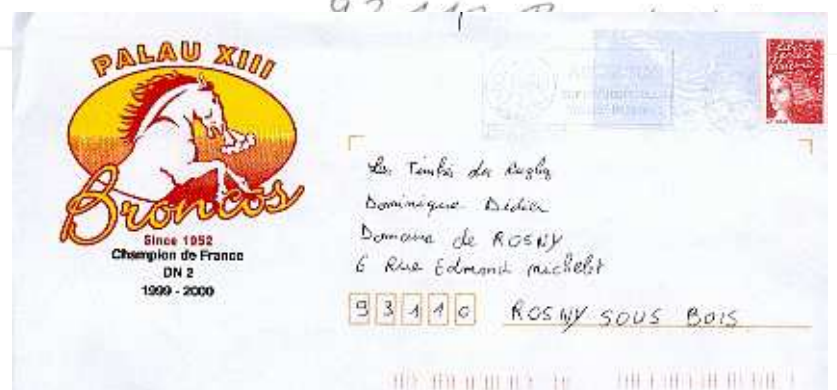 93 110
PALAU XIII
Broncos
Since 1952
Champion de France
DN 2
1999 - 2000
Les Timbrés du Rugby
Dominique Didier
Domaine de ROSNY
6 Rue Edmond Michelet
93110 ROSNY SOUS BOIS